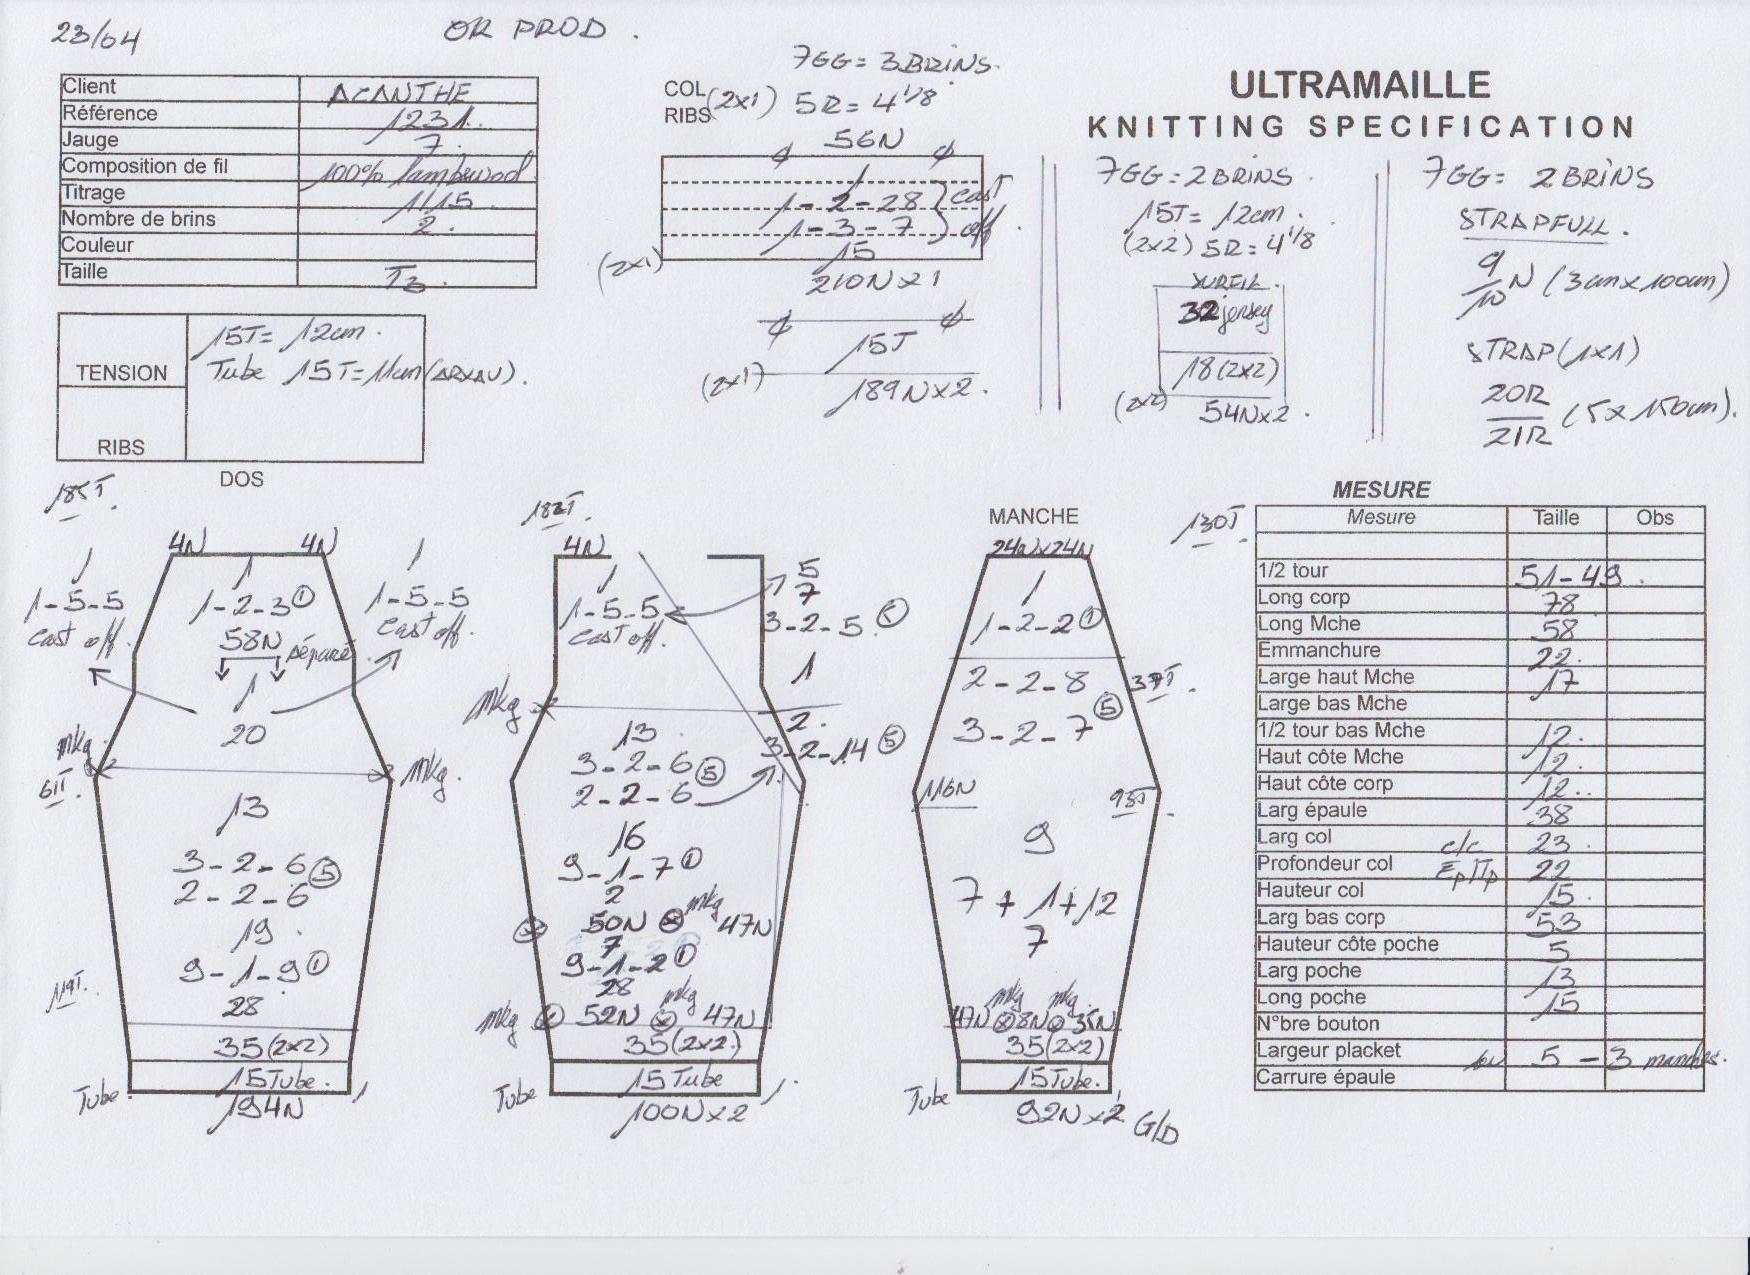 23/04
OR PROD.
Client ACANTHE
Référence 1231
Jauge 7
Composition de fil 100% lambswool
Titrage 1/15
Nombre de brins 2
Couleur
Taille T3
TENSION
15T= 12cm
Tube 15T= 11cm (ARXAV).
RIBS
7GG= 3BRINS
COL
RIBS (2x1) 5R= 4 1/8
56N
1
1-2-28 } cast
1-3-7 } off
15
(2x1) 210N x 1
15T
(2x1) 189N x 2
ULTRAMAILLE
KNITTING SPECIFICATION
7GG= 2BRINS
15T= 12cm
(2x2) 5R= 4 1/8
32 jersey
18 (2x2)
(2x2) 54N x 2
7GG= 2BRINS
STRAPFULL.
9/10 N (3cm x 100cm)
STRAP (1x1)
20R/21R (5 x 150cm).
DOS
185T.
4N 4N
1 1 1
1-5-5 1-2-3 ① 1-5-5
cast off 58N séparé cast off
1
20
mkg mkg.
61T.
13
3-2-6 ⑤
2-2-6
19
9-1-9 ①
119T.
28
35 (2x2)
15 Tube.
Tube 194N
182T.
4N
1
1-5-5
cast off.
5
7
3-2-5
1
mkg
2.
3-2-14 ⑤
13
3-2-6 ⑤
2-2-6
16
9-1-7 ①
2
50N mkg 47N
7
9-1-2 ①
28
mkg 52N mkg 47N
35 (2x2)
15 Tube
Tube 100N x 2
MANCHE
130T.
24N x 24N
1
1-2-2 ①
2-2-8
37T.
3-2-7 ⑤
116N 93T
9
7 + 1 + 12
7
mkg mkg
47N 8N 35N
35 (2x2)
15 Tube.
Tube 92N x 2 G/D
MESURE
Mesure Taille Obs
1/2 tour 51-49.
Long corp 78
Long Mche 58
Emmanchure 22.
Large haut Mche 17
Large bas Mche
1/2 tour bas Mche 12.
Haut côte Mche 12.
Haut côte corp 12..
Larg épaule 38
Larg col c/c 23
Profondeur col 22
Hauteur col 15.
Larg bas corp 53
Hauteur côte poche 5
Larg poche 13
Long poche 15
N°bre bouton
Largeur placket 5 - 3 manches.
Carrure épaule